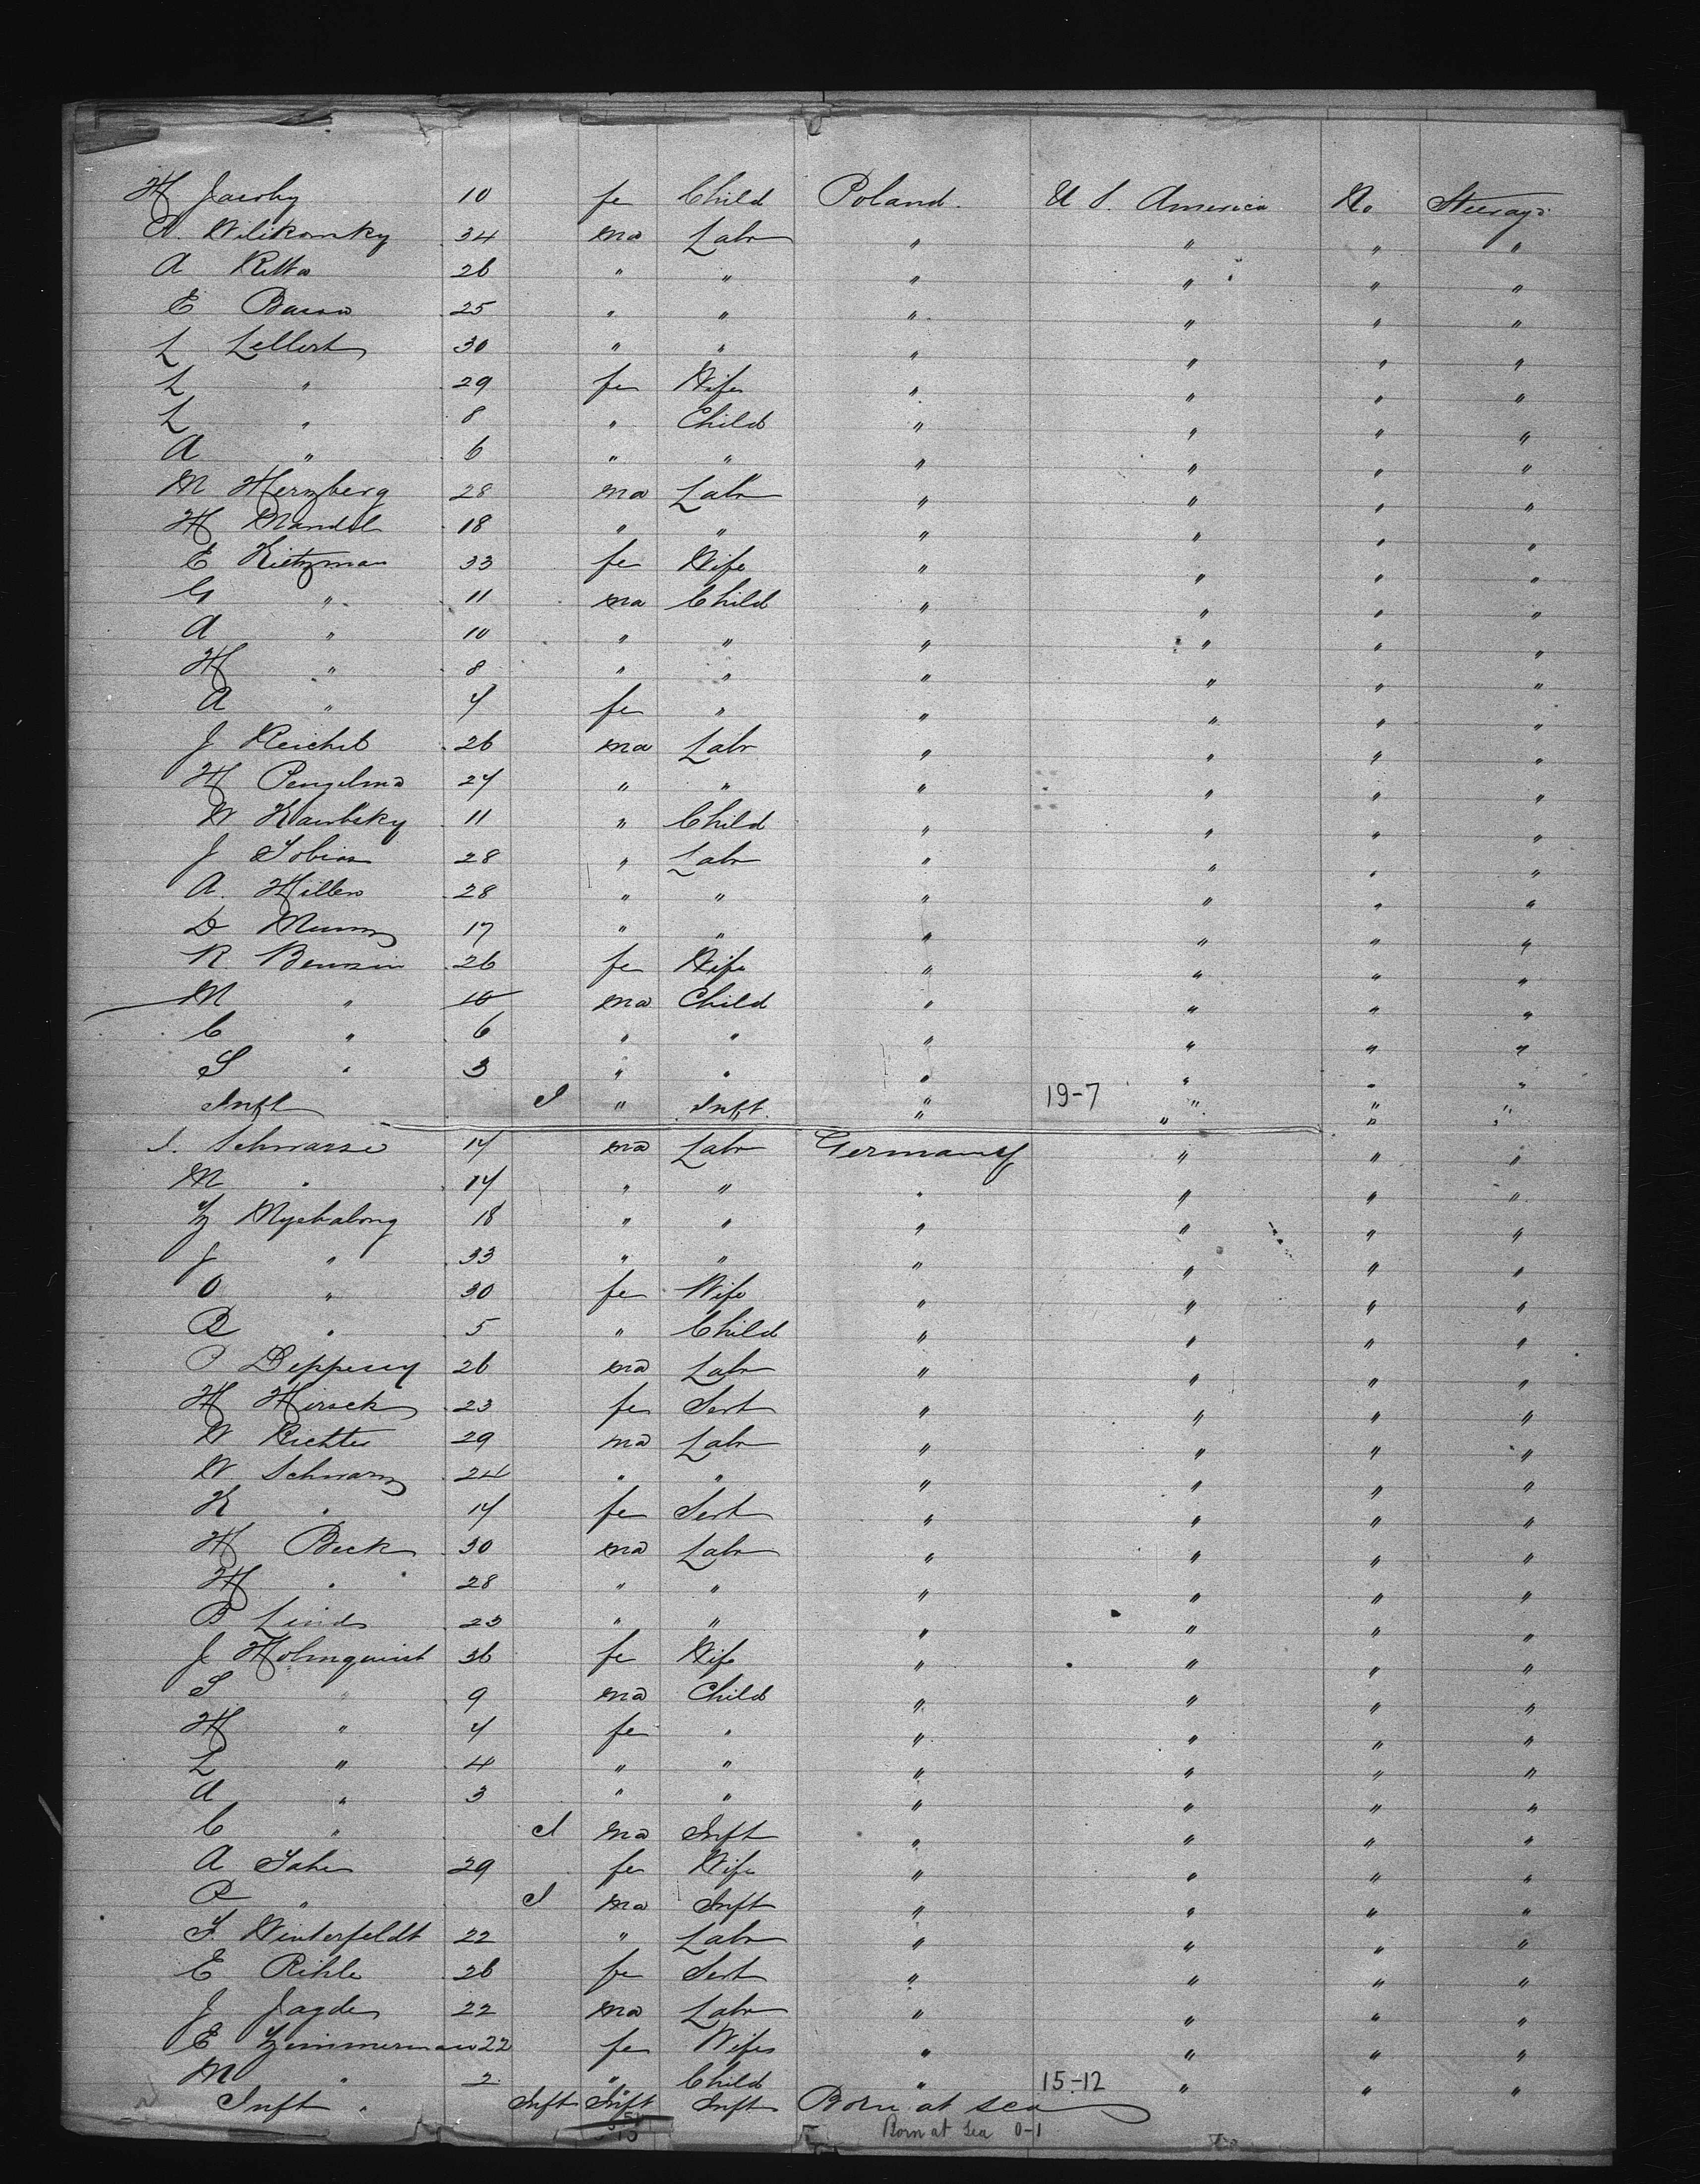 H Jacoby 10 fe Child Poland. U S. America No Steerage
Wilikowsky 34 ma Labr " " " "
A 26 " " " " " "
E 25 " " " " " "
L Lellert 30 " " " " " "
L " 29 fe Wife " " " "
L " 8 " Child " " " "
A " 6 " " " " " "
M Herzberg 28 ma Labr " " " "
H Mandel 18 " " " " " "
E Kietzman 33 fe Wife " " " "
G " 11 ma Child " " " "
A " 10 " " " " " "
H " 8 " " " " " "
A " 4 fe " " " " "
J Reichel 26 ma Labr " " " "
H 24 " " " " " "
W 11 " Child " " " "
J Tobias 28 " Labr " " " "
A. Hillen 28 " " " " " "
D 17 " " " " " "
R 26 fe Wife " " " "
M " 10 ma Child " " " "
C " 6 " " " " " "
S " 3 " " " " " "
Inft I " Inft. " 19-7 " " "
" " " "
I. Schwarze 14 ma Labr Germany " " "
M " 14 " " " " " "
18 " " " " " "
J " 33 " " " " " "
O " 30 fe Wife " " " "
B " 5 " Child " " " "
26 ma Labr " " " "
H Hirsch 23 fe Sert " " " "
W Richter 29 ma Labr " " " "
W Schwarz 24 " " " " " "
K " 14 fe Sert " " " "
H Beck 30 ma Labr " " " "
H " 28 " " " " " "
B Lind 23 " " " " " "
J Holmquist 36 fe Wife " " " "
S " 9 ma Child " " " "
H " 4 fe " " " " "
L " 4 " " " " " "
A " 3 " " " " " "
C " I ma Inft " " " "
A 29 fe Wife " " " "
R " I ma Inft " " " "
F Winterfeldt 22 " Labr " " " "
E Rihle 26 fe Sert " " " "
J Jagde 22 ma Labr " " " "
E Zimmerman 22 fe Wife " " " "
M " 2 " Child " 15-12 " " "
Inft " Inft Inft Inft Born at sea
Born at Sea 0-1